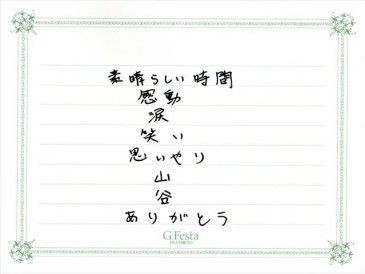 素晴らしい時間
感動
涙
笑い
思いやり
山
谷
ありがとう
G.Festa